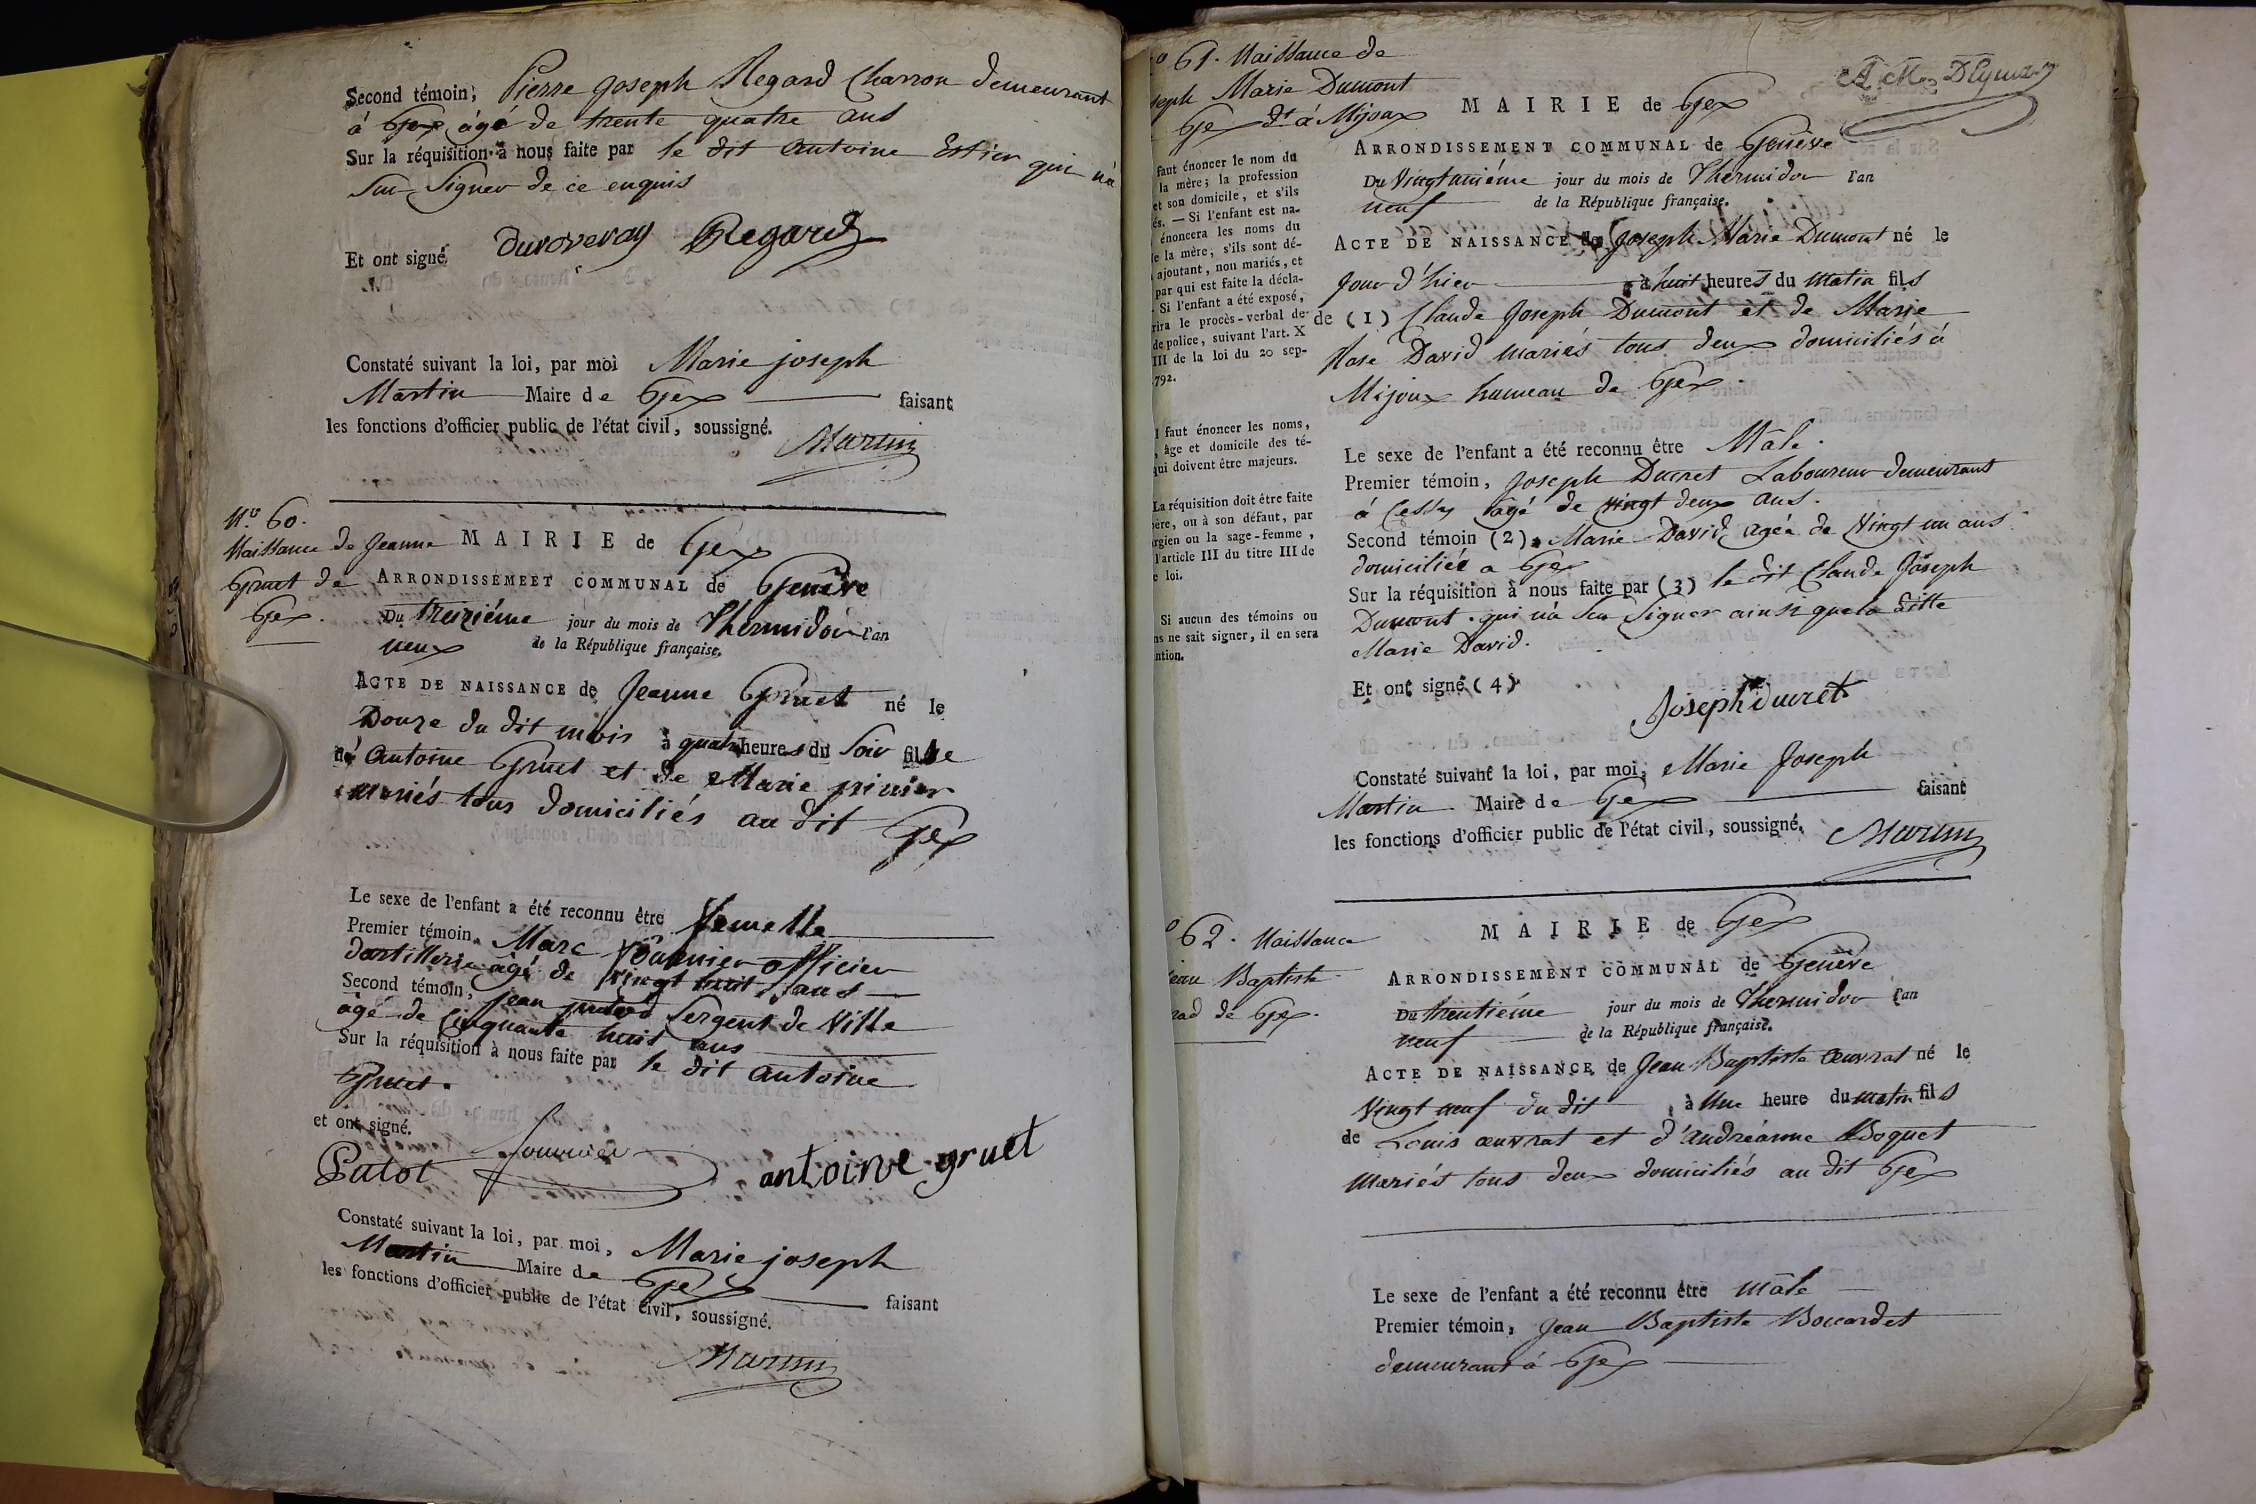 Second témoin, Pierre Joseph Regard Charron demeurant
à Gex âgé de trente quatre ans
Sur la réquisition à nous faite par le dit Antoine Estier qui n'a
su Signer de ce enquis
Et ont signé. duroveray Regard
Constaté suivant la loi, par moi Marie joseph
Martin Maire de Gex faisant
les fonctions d'officier public de l'état civil, soussigné.
Martin
N.o 60.
Naissance de Jeanne
Gruet de
Gex.
MAIRIE de Gex
ARRONDISSEMEET COMMUNAL de Genêve
Du treizième jour du mois de Thermidor l'an
neuf de la République française.
ACTE DE NAISSANCE de Jeanne Gruet né le
Douze du dit mois à quatre heures du Soir fille
de Antoine Gruet et de Marie
mariés tous domiciliés au dit Gex
Le sexe de l'enfant a été reconnu être femelle
Premier témoin, Marc Fournier officier
d'artillerie âgé de vingt huit ans
Second témoin, Jean Sergent de Ville
âgé de Cinquante huit ans
Sur la réquisition à nous faite par le dit Antoine
Gruet.
et ont signé.
Fournier
Patot antoine gruet
Constaté suivant la loi, par moi, Marie joseph
Martin Maire de Gex faisant
les fonctions d'officier public de l'état civil, soussigné.
Martin
o 61. Naissance de
seph Marie Dumont
Gex dt à Mijoux
faut énoncer le nom du
la mère; la profession
et son domicile, et s'ils
és. — Si l'enfant est na-
énoncera les noms du
e la mère, s'ils sont dé-
ajoutant, non mariés, et
par qui est faite la décla-
Si l'enfant a été exposé,
rira le procès-verbal de
de police, suivant l'art. X
III de la loi du 20 sep-
792.
l faut énoncer les noms,
, âge et domicile des té-
qui doivent être majeurs.
La réquisition doit être faite
ère, ou à son défaut, par
rgien ou la sage-femme,
l'article III du titre III de
e loi.
Si aucun des témoins ou
ns ne sait signer, il en sera
ntion.
MAIRIE de Gex
ARRONDISSEMENT COMMUNAL de Genêve
Du Vingt unième jour du mois de Thermidor l'an
neuf de la République française.
ACTE DE NAISSANCE de Joseph Marie Dumont né le
Jour d'hier à huit heures du matin fils
de (1) Claude Joseph Dumont et de Marie
Rose David mariés tous deux domiciliés à
Mijoux hameau de Gex.
Le sexe de l'enfant a été reconnu être Mâle.
Premier témoin, Joseph Ducret Laboureur demeurant
à Cessy âgé de vingt deux ans.
Second témoin (2), Marie David agée de Vingt un ans
domiciliée a Gex
Sur la réquisition à nous faite par (3) le dit Claude Joseph
Dumont qui n'a Su Signer ainsi que la ditte
Marie David.
Et ont signé (4)
Joseph ducret
Constaté suivant la loi, par moi, Marie Joseph
Martin Maire de Gex faisant
les fonctions d'officier public de l'état civil, soussigné.
Martin
o 62. Naissance
Jean Baptiste
de Gex.
MAIRIE de Gex
ARRONDISSEMENT COMMUNAL de Genêve
Du trentième jour du mois de Thermidor l'an
neuf de la République française.
ACTE DE NAISSANCE de Jean Baptiste œuvrat né le
Vingt neuf du dit à Une heure du matin fils
de Louis œuvrat et d'Andréanne Boquet
Mariés tous deux domiciliés au dit Gex
Le sexe de l'enfant a été reconnu être mâle
Premier témoin, Jean Baptiste Boccardet
demeurant à Gex